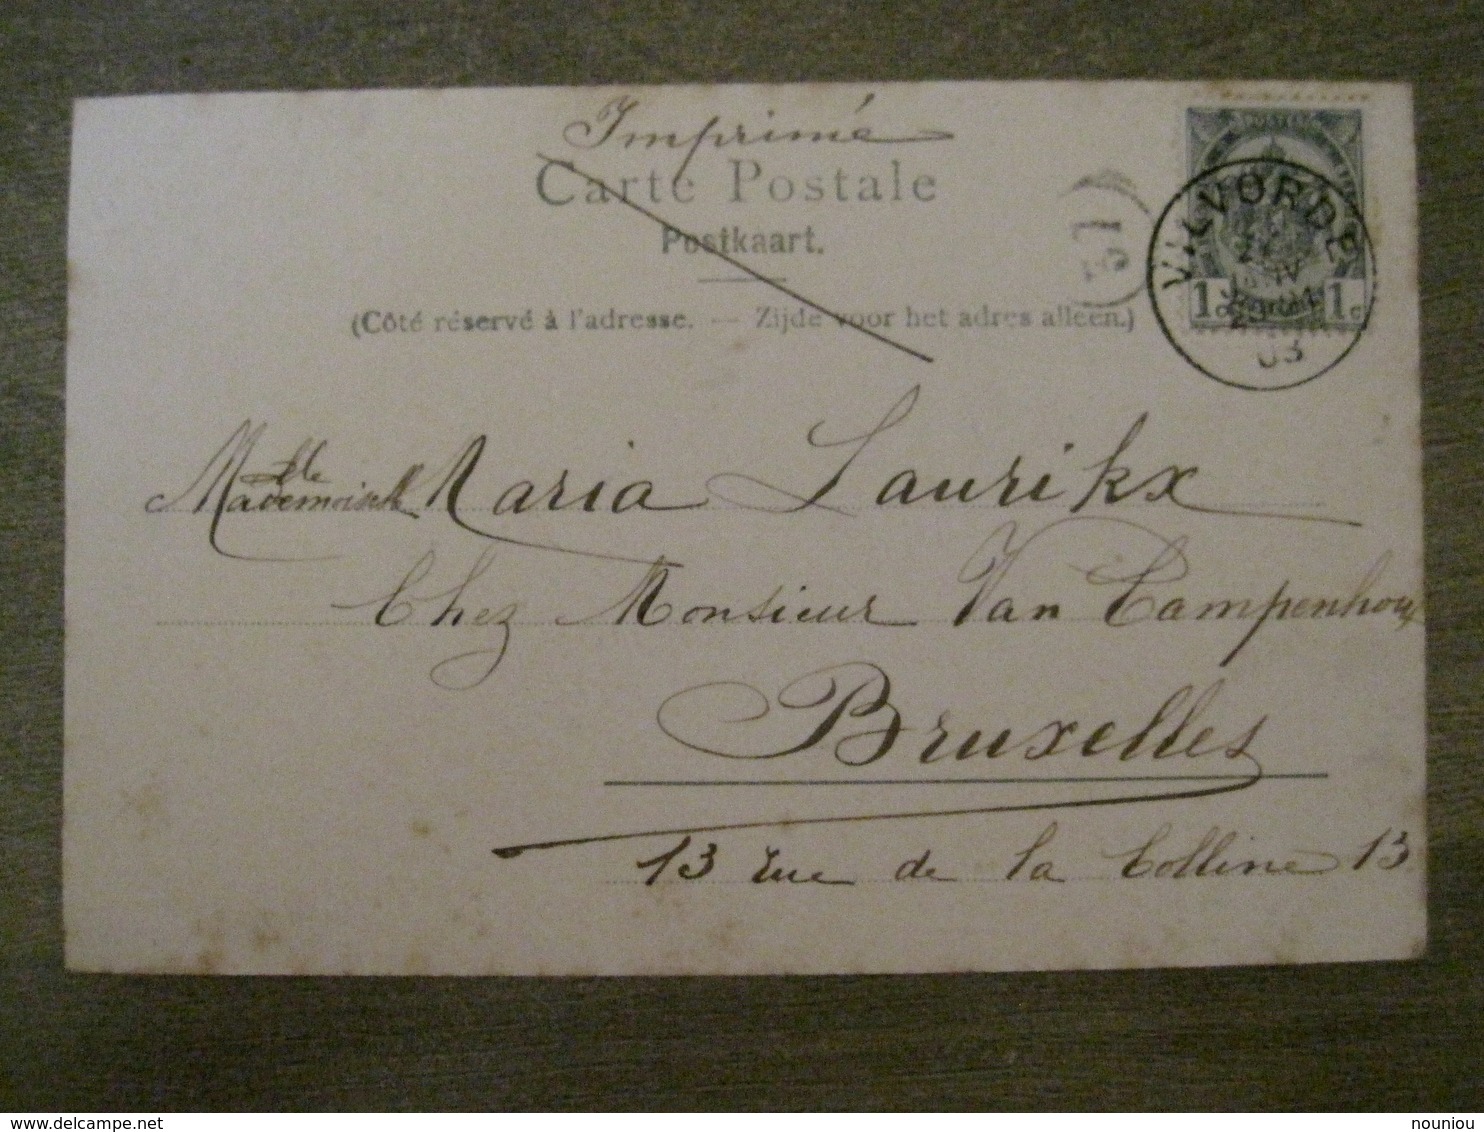 Imprimé
Carte Postale
Postkaart.
(Côté réservé à l'adresse. — Zijde voor het adres alleen.)
VILVORDE
1c 1c
03
12
Mademoiselle Maria Laurikx
Chez Monsieur Van Campenhout
Bruxelles
13 rue de la Colline 13
nouniou